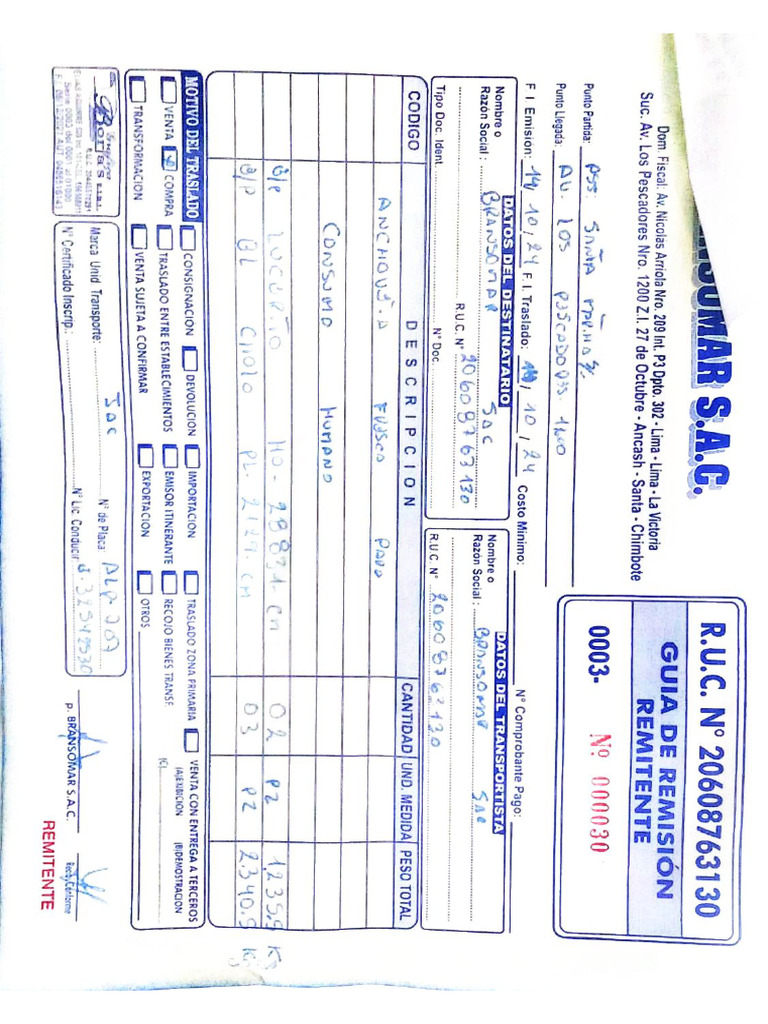 ANSOMAR S.A.C.
Dom. Fiscal: Av. Nicolas Arriola Nro. 209 Int. P3 Dpto. 302 - Lima - Lima - La Victoria
Suc. Av. Los Pescadores Nro. 1200 Z.I. 27 de Octubre - Ancash - Santa - Chimbote
R.U.C. N° 20608763130
GUIA DE REMISIÓN
REMITENTE
0003- Nº 000030
Punto Partida:
Punto Llegada: AV. LOS PESCADORES. 1200
F.I. Emisión: 14 / 10 / 24 F.I. Traslado: / 10 / 24 Costo Minimo: N° Comprobante Pago:
DATOS DEL DESTINATARIO
Nombre o
Razón Social : BRANSOMAR SAC
R.U.C. N° 20608763130
Tipo Doc. Ident. N° Doc.
DATOS DEL TRANSPORTISTA
Nombre o
Razón Social : BRANSOMAR SAC
R.U.C. N° 20608763130
CODIGO DESCRIPCION CANTIDAD UND. MEDIDA PESO TOTAL
ANCHOVETA FRESCO PARA
CONSUMO HUMANO
E/P LUCERITO HO-28831-CM 02 PZ 1,235.5 KG
E/P EL CHOLO PL-2129-CM 03 PZ 2,340.5 KG
MOTIVO DEL TRASLADO
VENTA COMPRA TRANSFORMACION
CONSIGNACION DEVOLUCION
TRASLADO ENTRE ESTABLECIMIENTOS
VENTA SUJETA A CONFIRMAR
IMPORTACION
EMISOR ITINERANTE
EXPORTACION
TRASLADO ZONA PRIMARIA
RECOJO BIENES TRANSF.
OTROS
VENTA CON ENTREGA A TERCEROS
(A)EXIBICION (B)DEMOSTRACION
(C)
Boras
Marca Unid Transporte: JAC N° de Placa:
N° Certificado Inscrip.: N° Lic. Conducir
p. BRANSOMAR S.A.C.
Recibí Conforme
REMITENTE